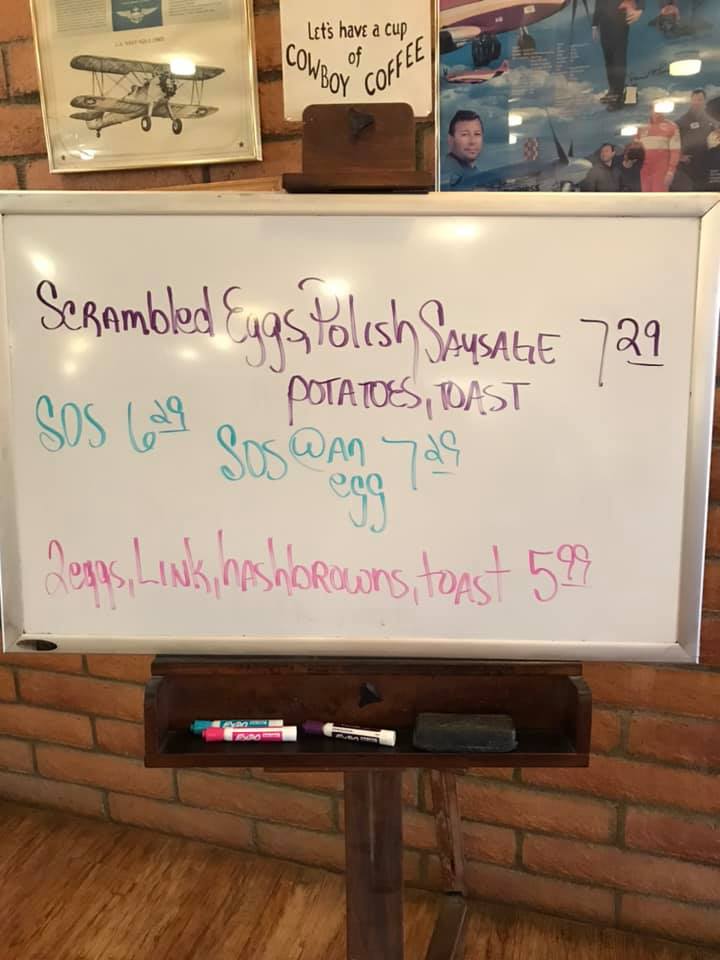 Let's have a cup
of
COWBOY COFFEE
Scrambled Eggs, Polish Sausage 7 29
Potatoes, Toast
SOS 6 29
SOS @ an 7 29
egg
2 eggs, Link, hashbrowns, toast 5 99
EXPO
EXPO
EXPO